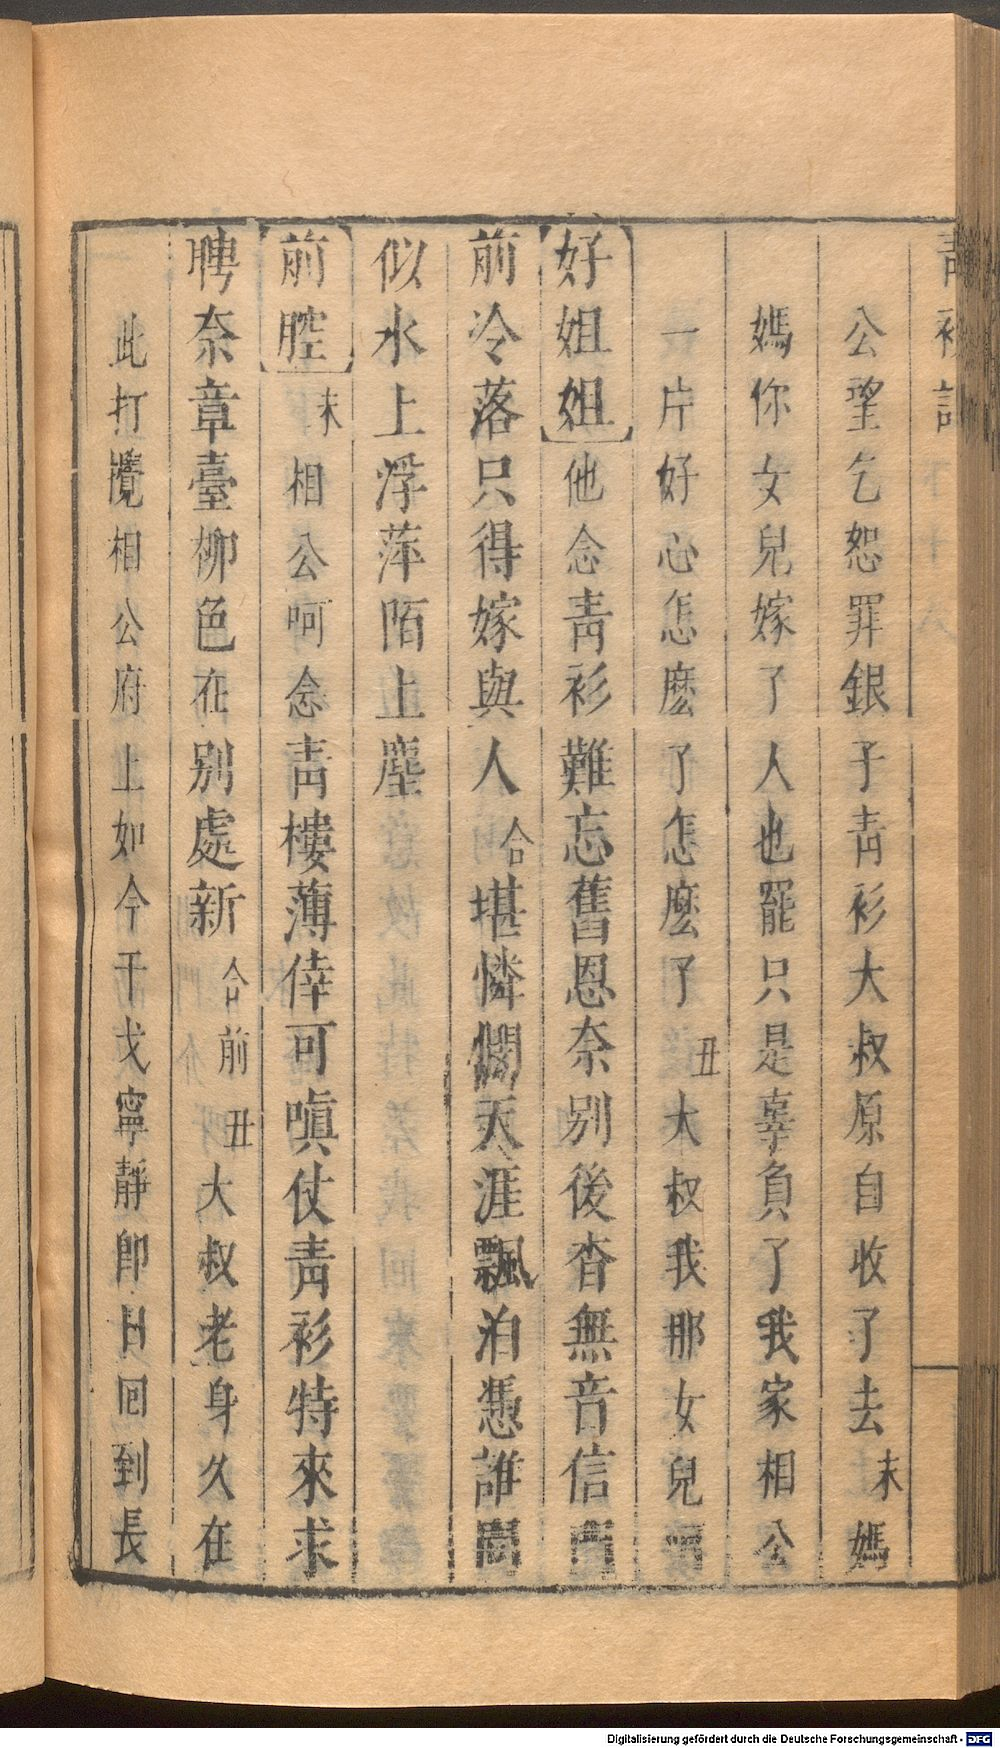 公望乞恕罪銀子青衫大叔原自收了去末媽
媽你女兒嫁了人也罷只是辜負了我家相公
一片好心怎麽了怎麽了丑大叔我那女兒
好姐姐他念青衫難忘舊恩奈别後杳無音信門
前冷落只得嫁與人合堪憐憫天涯飄泊慿誰問
似水上浮萍陌上塵
前腔末相公呵念青樓薄倖可嗔仗青衫特來求
聘奈章臺柳色在别處新合前丑大叔老身久在
此打攪相公府上如今干戈寧靜即日回到長
Digitalisierung gefördert durch die Deutsche Forschungsgemeinschaft - DFG